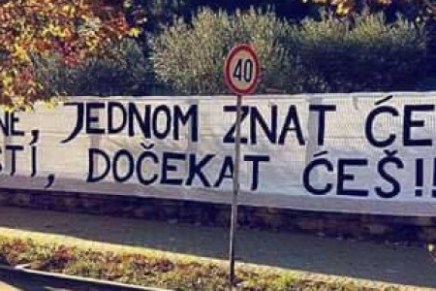 40
NE, JEDNOM ZNAT ĆE
STI, DOČEKAT ĆEŠ!!